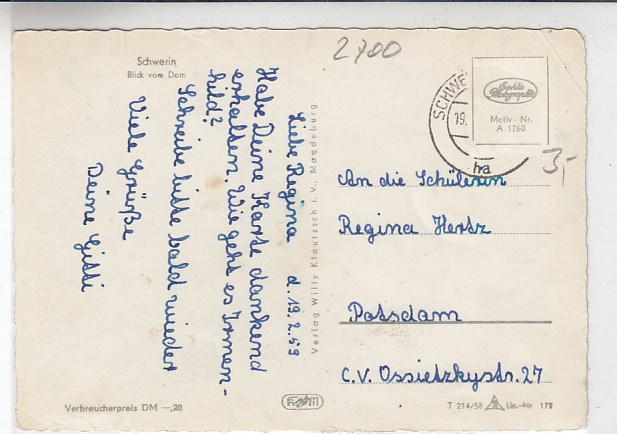 Schwerin
Blick vom Dom
2700
Liebe Regina
d. 19.2.59
Habe Deine Karte dankend
erhalten. Wie geht es Irmen-
hild?
Schreibe bitte bald wieder
Viele Grüße
Deine Gitti
Verlag Willy Klautzsch i.V., Magdeburg
SCHWE
19.
ha
Echte
Photographie
Motiv - Nr.
A 1760
3,-
An die Schülerin
Regina Hertz
Potsdam
C.V. Ossietzkystr. 27
Verbraucherpreis DM —,20
T 214/58